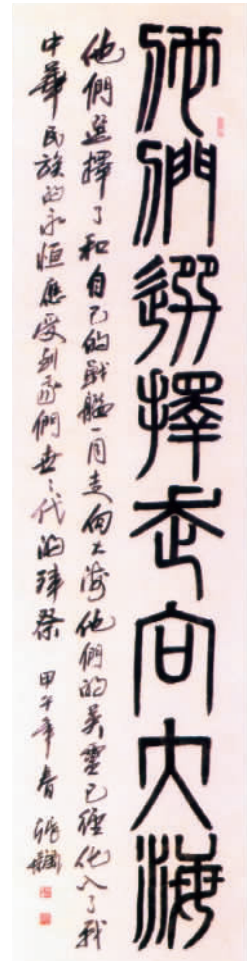 他們選擇走向大海
他們選擇了和自己的戰艦一同走向大海他們的英靈已經化入了我
中華民族的永恒應受到我們世々代的祭 甲午年春 張